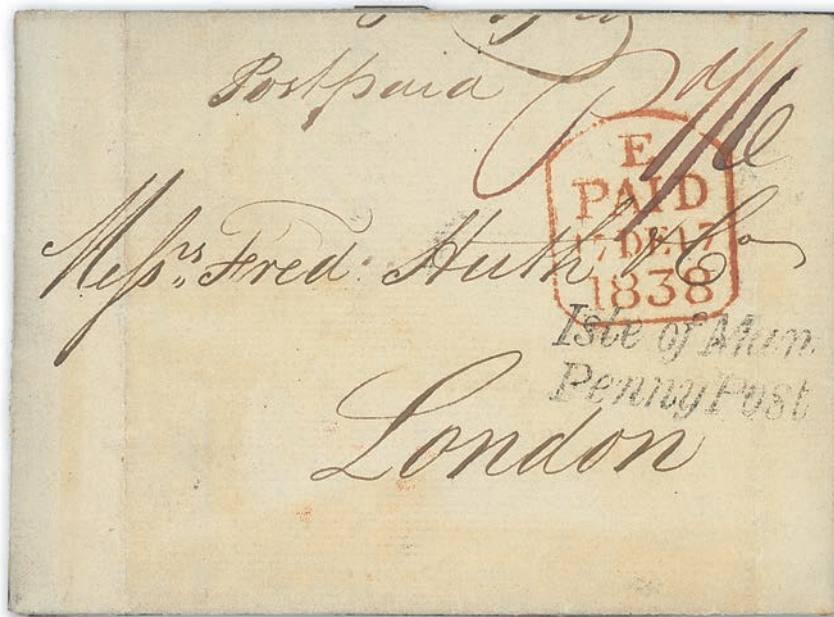 Postpaid
E
PAID
17 DE 17
1838
Messrs Fred: Huth & Co
Isle of Man
Penny Post
London